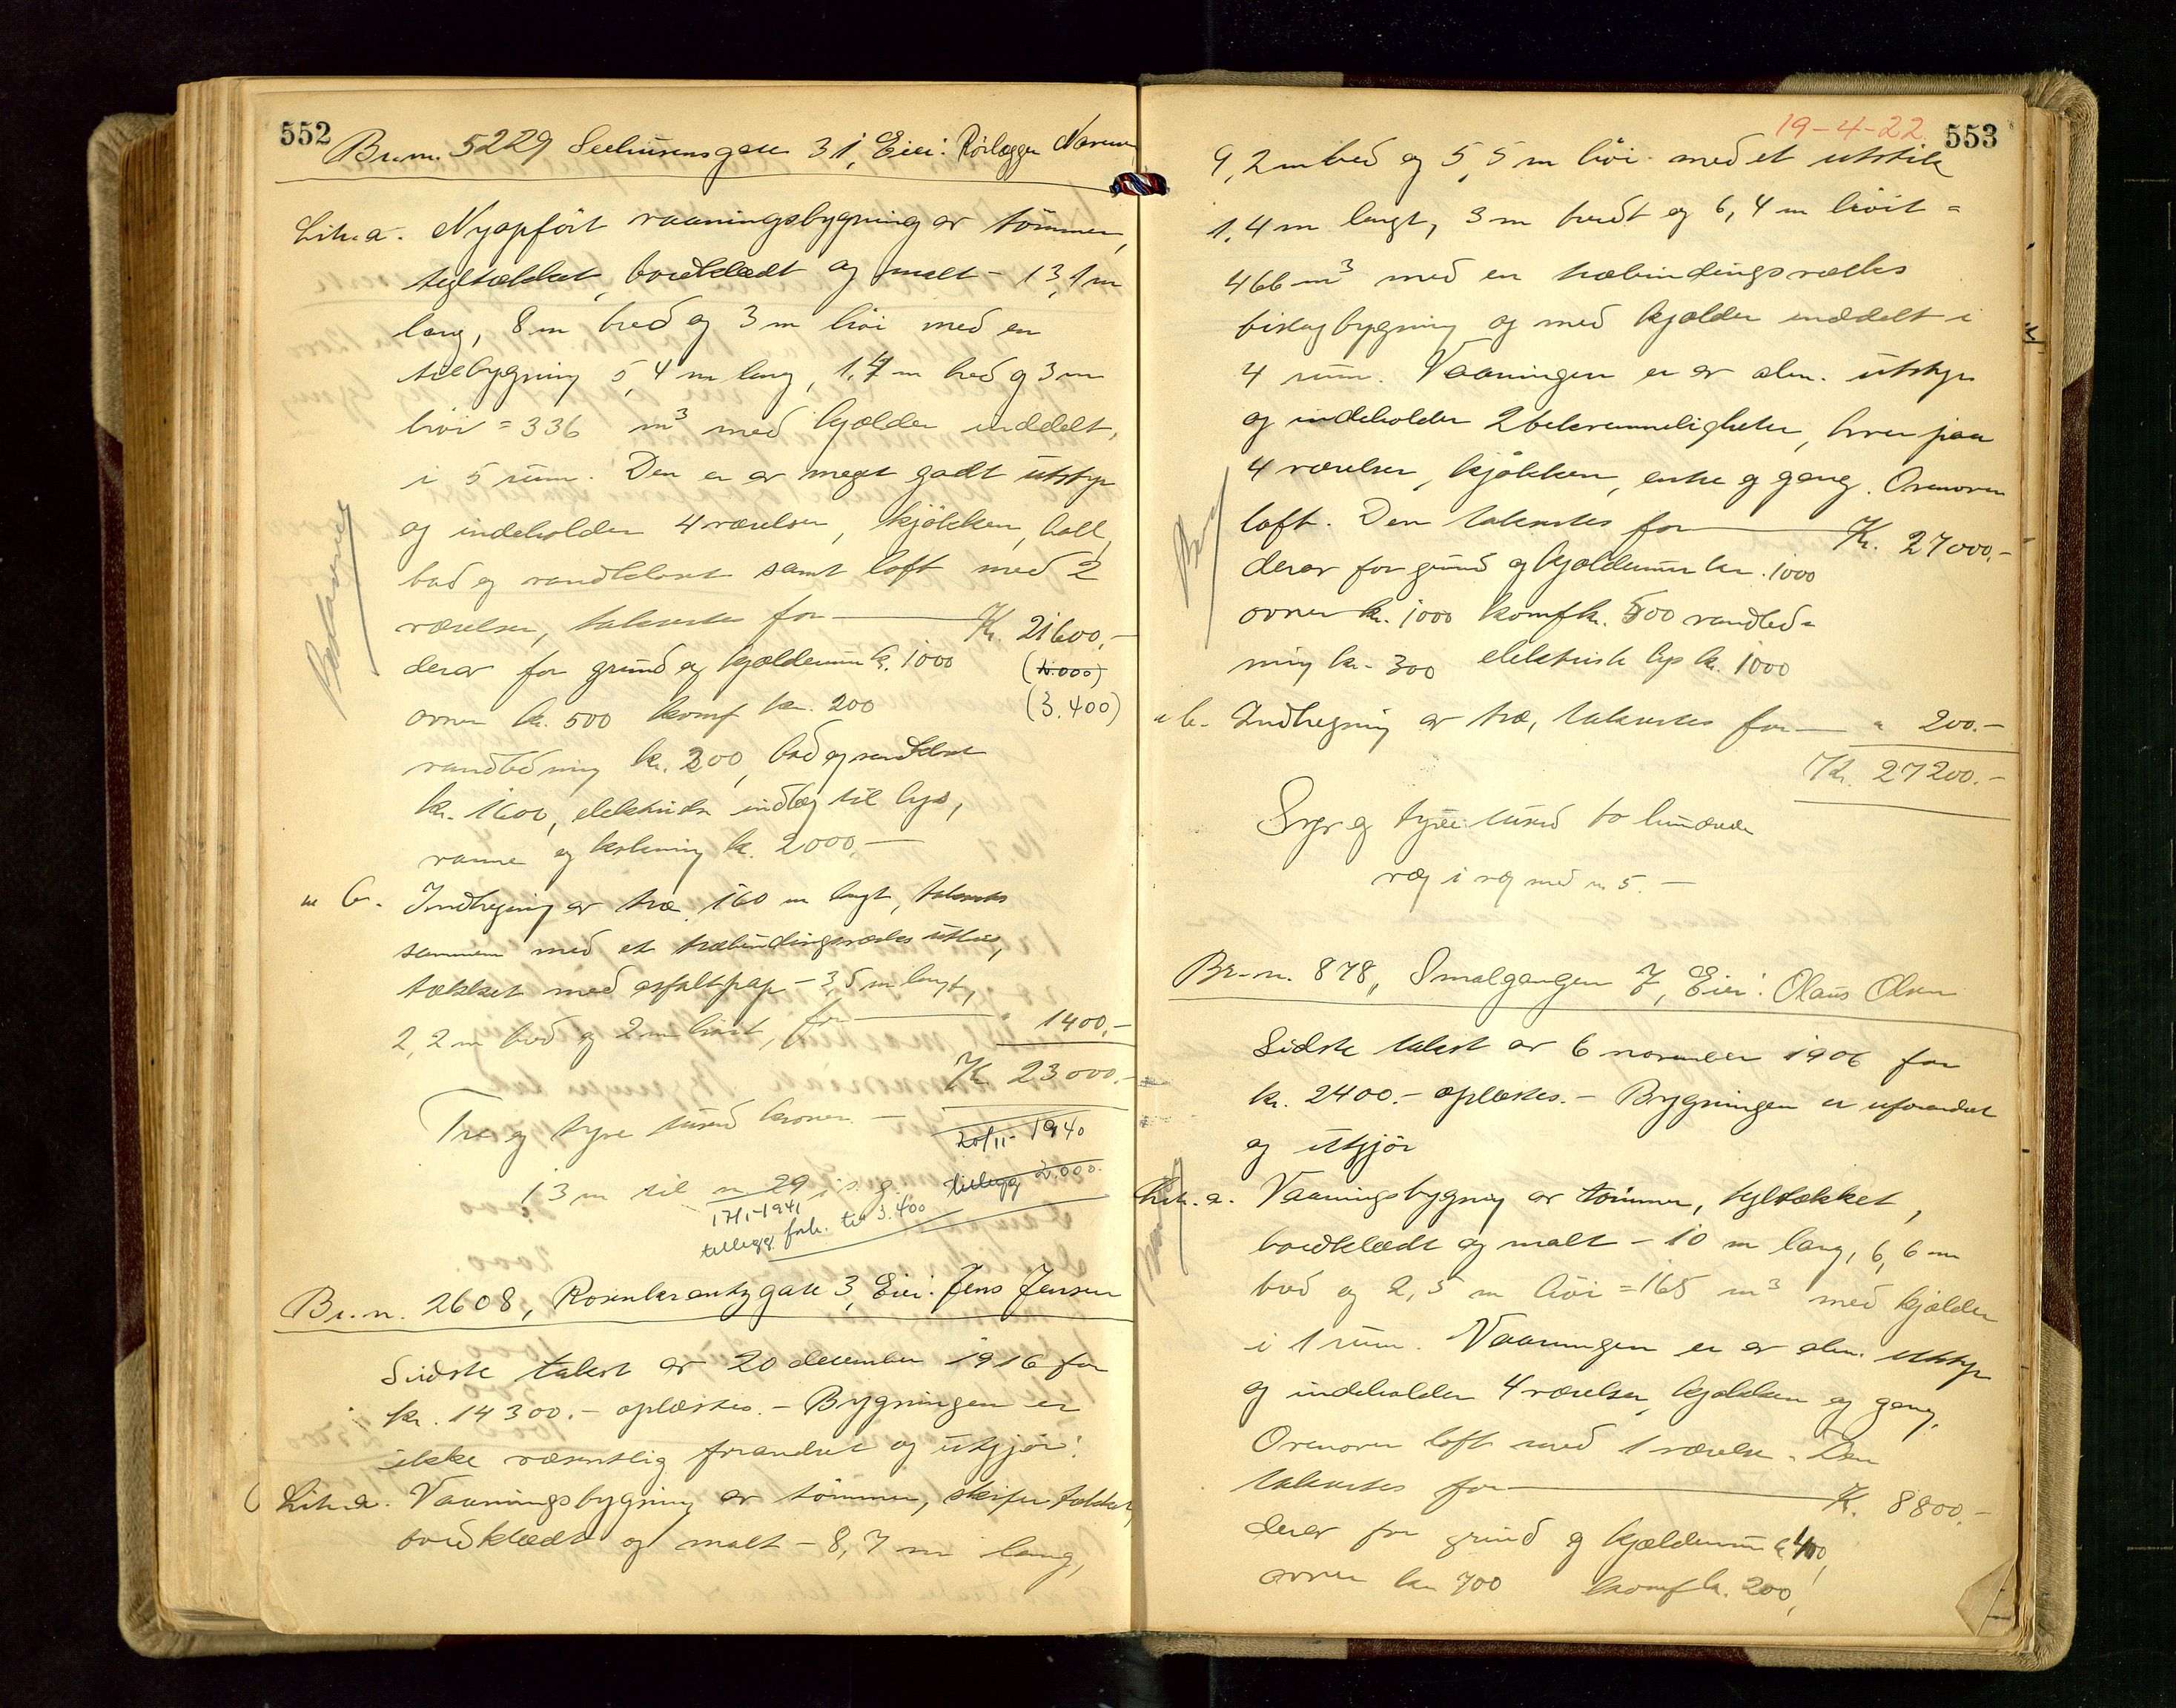 552
Br.n. 5229 Seehusensgate 31, Eier: Rørlægger
Litr. a. Nyopført vaaningsbygning av tømmer,
tegltækket, bordklædt og malt - 13,1 m
lang, 8 m bred og 3 m høi med en
tilbygning 5,4 m lang, 1,4 m bred og 3 m
høi = 336 m³ med kjælder inddelt
i 5 rum. Den er av meget godt utstyr
og indeholder 4 værelser, kjøkken, hall,
bad og vandklosett samt loft med 2
værelser, taksertes for Kr. 21600,-
derav for grund og kjælderrum kr. 1000 (10.000)
ovner kr. 500 komf kr. 200 (3.400)
vandledning kr. 300, bad og vandklosett
kr. 1600, elektriske indlæg til lys,
varme og kokning kr. 2000,-
" b. Indhegning av træ, 160 m langt, taksertes
sammen med et træbindingsverks uthus,
tækket med asfaltpap - 3,5 m langt,
2,2 m bred og 2 m høit, for " 1400,-
Kr. 23000.-
Tre og tyve tusend kroner. -
20/11-1940
13 m til n 29 i s. g. tillegg 2.000.
17/1-1941
tillegg forh. til 3.400
Br.n. 2608, Rosenkrantzgate 3, Eier: Jens Jensen
Sidste takst av 20 december 1916 for
kr. 14300.- oplæstes. - Bygningen er
ikke væsentlig forandret og utgjør:
Litr. a. Vaaningsbygning av tømmer, skifertækket,
bordklædt og malt - 8,7 m lang,
19-4-22. 553
9,2 m bred og 5,5 m høi med et utstik
1,4 m langt, 3 m bredt og 6,4 m høit =
466 m³ med en træbindingsverks
bislagbygning og med kjælder inddelt i
4 rum. Vaaningen er av alm. utstyr
og indeholder 2 bekvemmeligheter, hver paa
4 værelser, kjøkken, entre og gang. Ovenover
loft. Den taksertes for Kr. 27000,-
derav for grund og kjælderrum kr. 1000
ovner kr. 1000 komf kr. 500 vandled-
ning kr. 300 elektrisk lys kr. 1000
" b. Indhegning av træ, taksertes for " 200.-
Kr. 27200.-
Syv og tyve tusend to hundrede
væg i væg med n 5. -
Br.n. 878, Smalgangen 7, Eier: Olaus Olsen
Sidste takst av 6 november 1906 for
kr. 2400.- oplæstes. - Bygningen er uforandret
og utgjør
Litr. a. Vaaningsbygning av tømmer, tegltækket,
bordklædt og malt - 10 m lang, 6,6 m
bred og 2,5 m høi = 165 m³ med kjælder
i 1 rum. Vaaningen er av alm. utstyr
og indeholder 4 værelser, kjøkken og gang.
Ovenover loft med 1 værelse. Den
taksertes for Kr. 8800.-
derav for grund og kjælderrum kr. 400,
ovner kr. 700 komf kr. 200,